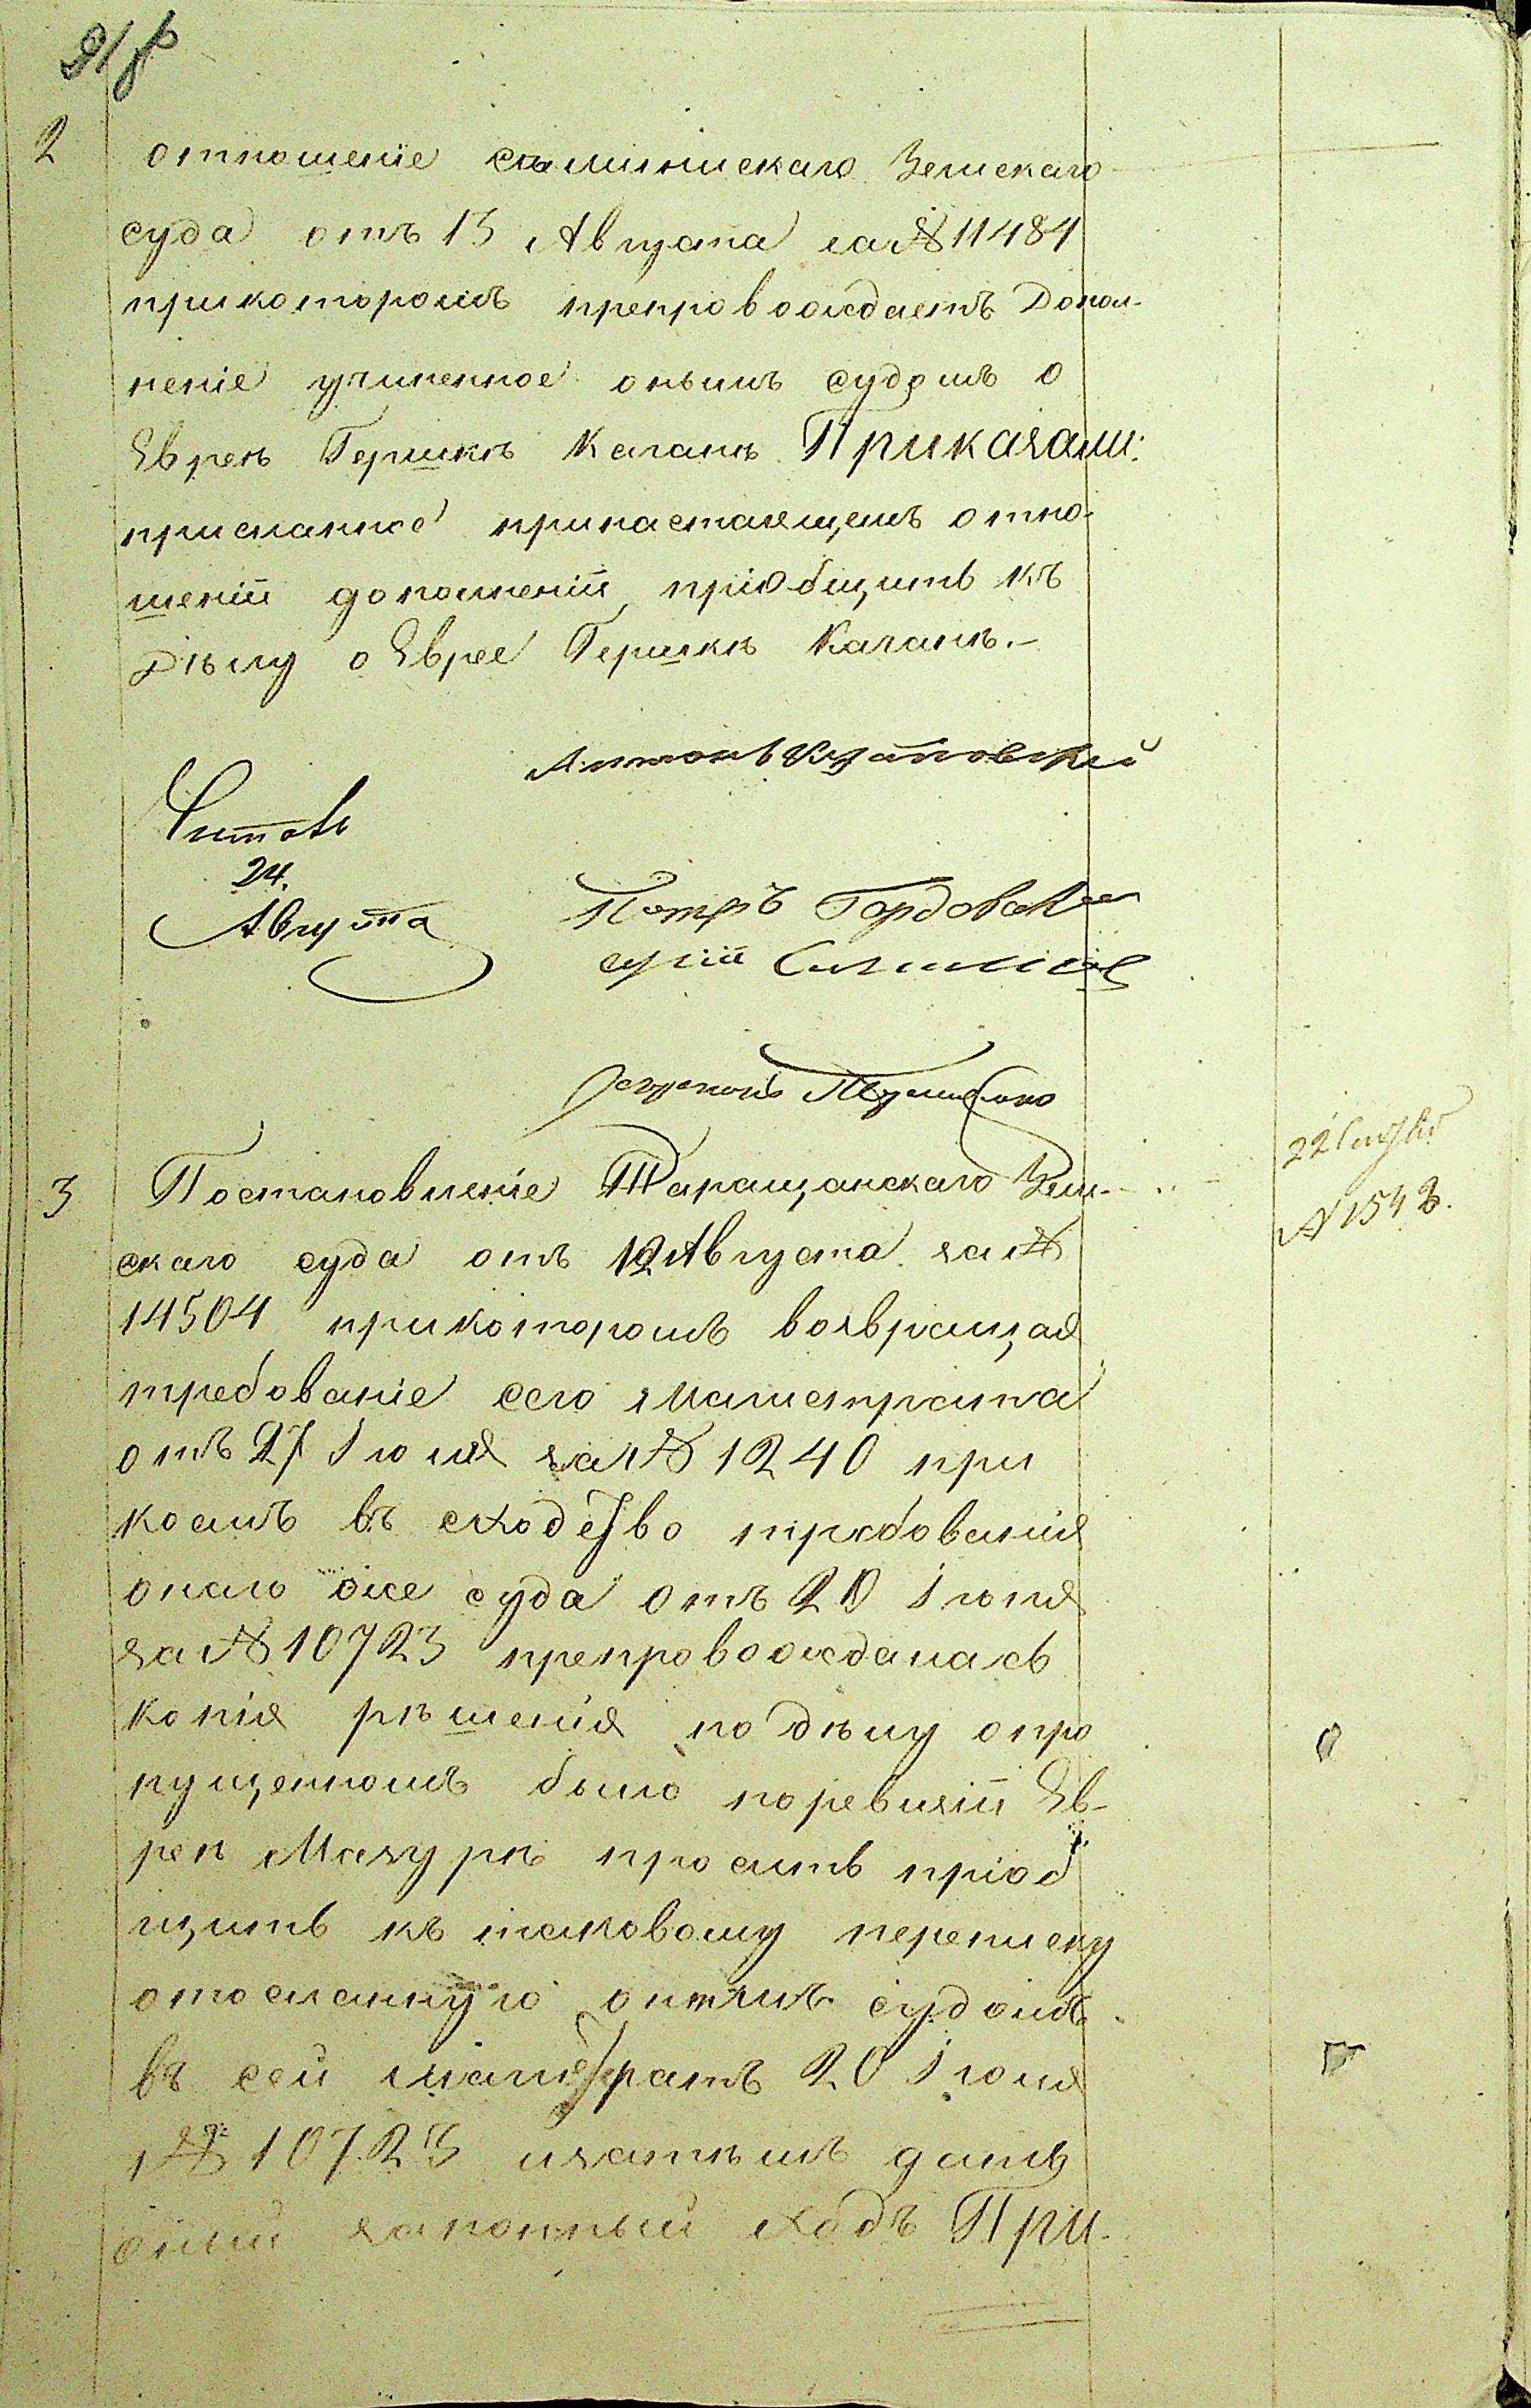 2
отношеніе Земскаго
суда отъ 13 Августа за № 11484
прикоторомъ препровождаетъ Допол-
неніе учиненное онымъ судомъ о
Евреѣ Гершкѣ Каганѣ Приказали:
присланное принастаящемъ отно-
шеніи дополненіи пріобщить къ
Дѣлу о Еврее Гершкѣ Каганѣ.-
Антонъ
Читалъ
24.
Августа
Петръ
3
Постановленіе Таращанскаго Зем-
скаго суда отъ 12 Августа за №
14504 прикоторомъ возвращая
требованіе сего Магистрата
отъ 27 Іюля за № 1240 при
коемъ въ сходство требованія
онаго же суда отъ 20 Іюня
за № 10723 препровождалась
копія рѣшенія по дѣлу опро
пущенномъ было поревизіи Ев-
реѣ Мазурѣ проситъ пріоб
щить къ таковому переписку
отосланную онымъ судомъ
въ сей магистратъ 20 Іюня
№ 10723 изатѣмъ дать
оный законный ходъ При-
22
№ 1542.